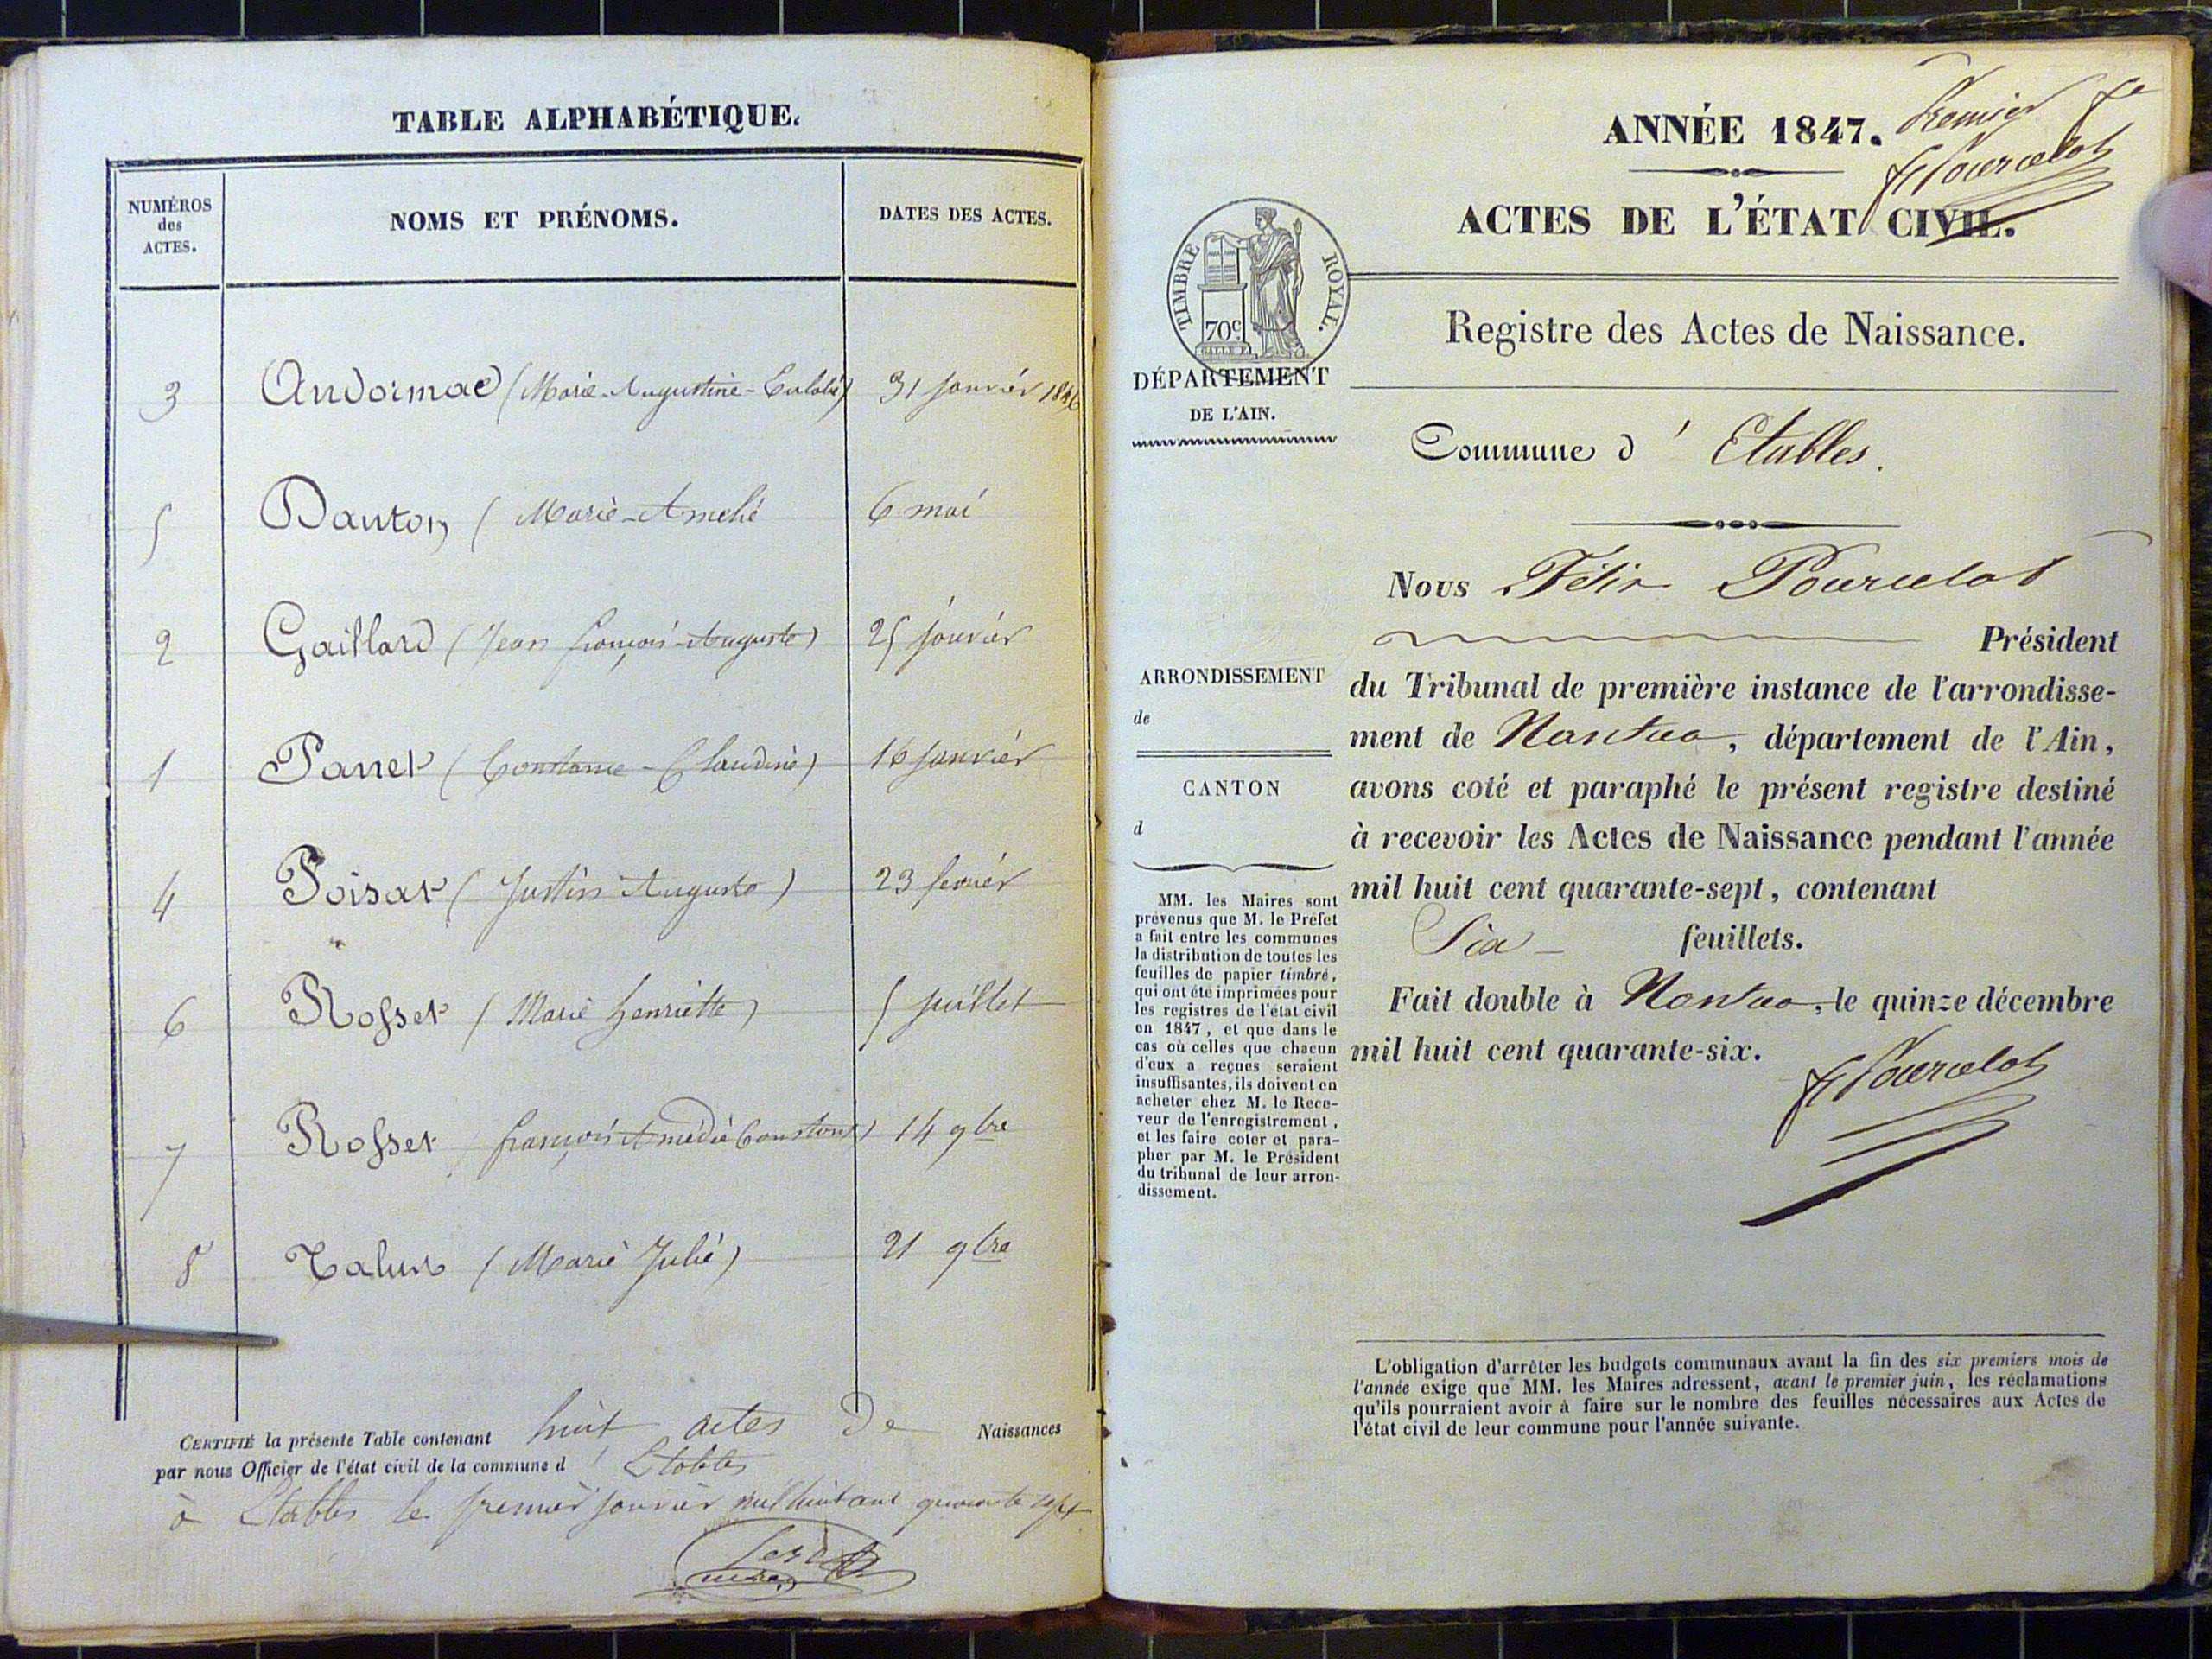 TABLE ALPHABÉTIQUE.
NUMÉROS
des
ACTES.
NOMS ET PRÉNOMS.
DATES DES ACTES.
3 (Marie-Augustine-Eulalie) 31 janvier 1846
5 Danton ( Marie-Amelie 6 mai
2 Gaillard ( Jean françois-Auguste) 25 janvier
1 Panet ( Constance-Claudine) 16 janvier
4 Poisat ( Justin Auguste ) 23 fevrier
6 Rosset ( Marie henriette ) 5 juillet
7 Rosset françois Amédée Constant) 14 9bre
8 (Marie Julie) 21 9bre
CERTIFIÉ la présente Table contenant huit actes De Naissances
par nous Officier de l'état civil de la commune d' Etables
à Etables le premier janvier mil huit cent quarante sept
Premier fe
F Pourcelot
ANNÉE 1847.
ACTES DE L'ÉTAT CIVIL.
TIMBRE ROYAL.
70c
Registre des Actes de Naissance.
DÉPARTEMENT
DE L'AIN.
Commune d' Etables.
Nous Félix Pourcelot
Président
du Tribunal de première instance de l'arrondisse-
ment de Nantua, département de l'Ain,
avons coté et paraphé le présent registre destiné
à recevoir les Actes de Naissance pendant l'année
mil huit cent quarante-sept, contenant
Six feuillets.
Fait double à Nantua, le quinze décembre
mil huit cent quarante-six.
F Pourcelot
ARRONDISSEMENT
de
CANTON
d
MM. les Maires sont
prévenus que M. le Préfet
a fait entre les communes
la distribution de toutes les
feuilles de papier timbré,
qui ont été imprimées pour
les registres de l'état civil
en 1847, et que dans le
cas où celles que chacun
d'eux a reçues seraient
insuffisantes, ils doivent en
acheter chez M. le Rece-
veur de l'enregistrement,
et les faire coter et para-
pher par M. le Président
du tribunal de leur arron-
dissement.
L'obligation d'arrêter les budgets communaux avant la fin des six premiers mois de
l'année exige que MM. les Maires adressent, avant le premier juin, les réclamations
qu'ils pourraient avoir à faire sur le nombre des feuilles nécessaires aux Actes de
l'état civil de leur commune pour l'année suivante.